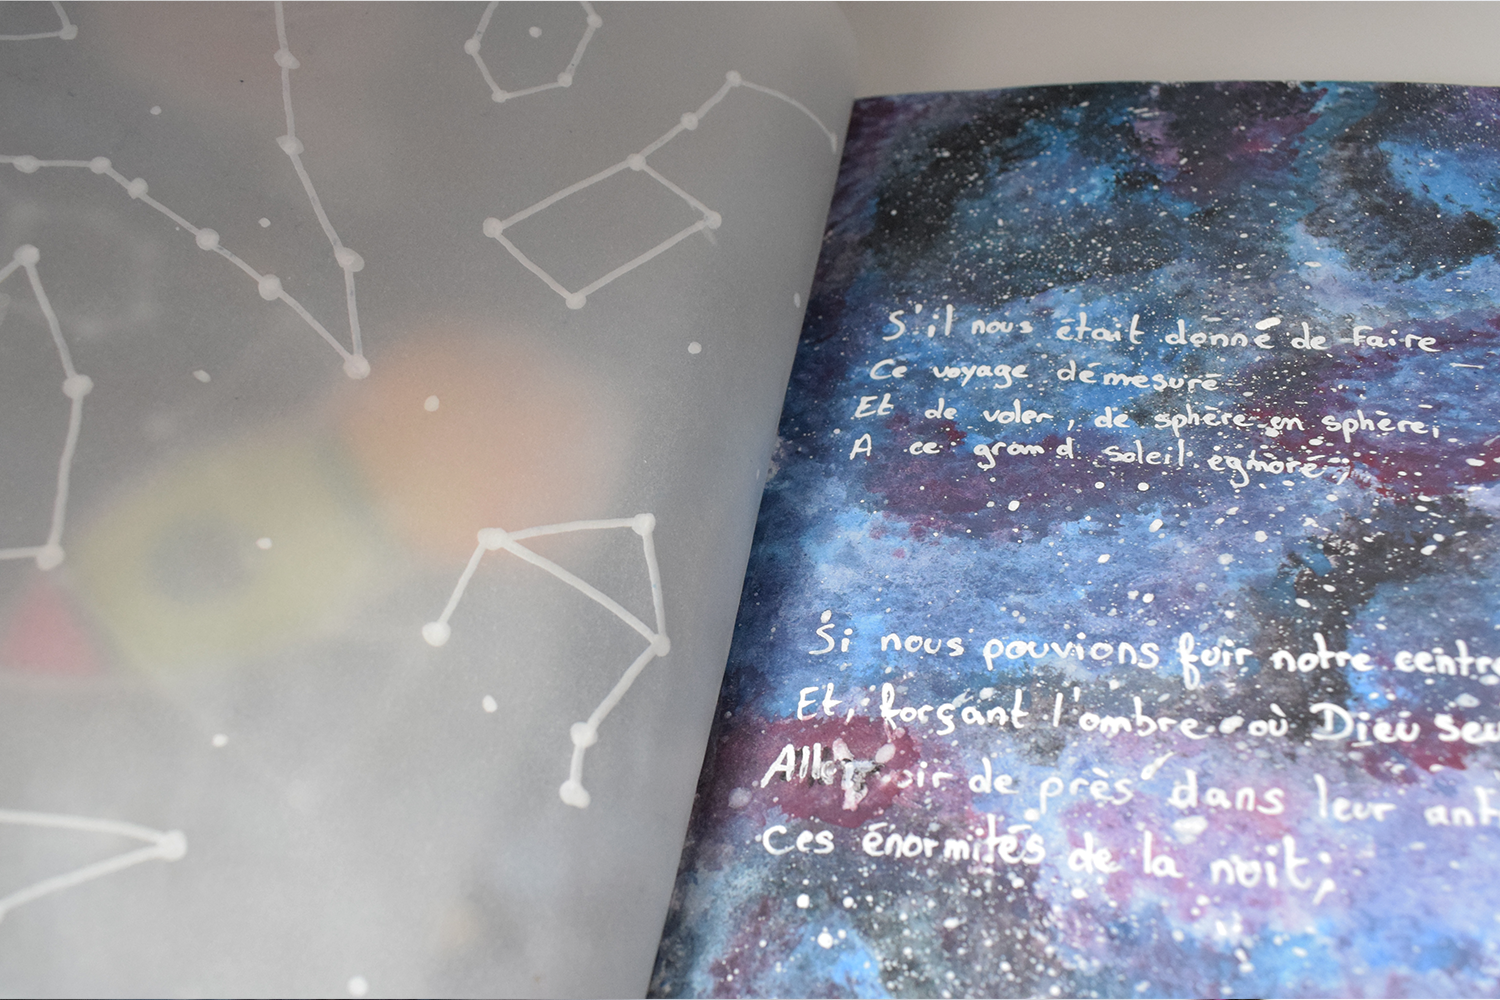 S'il nous était donné de faire
Ce voyage démesuré
Et de voler, de sphère en sphère,
A ce grand soleil égnoré;
Si nous pouvions fuir notre centre
Et, forçant l'ombre où Dieu seul
de près dans leur
Ces énormités de la nuit;